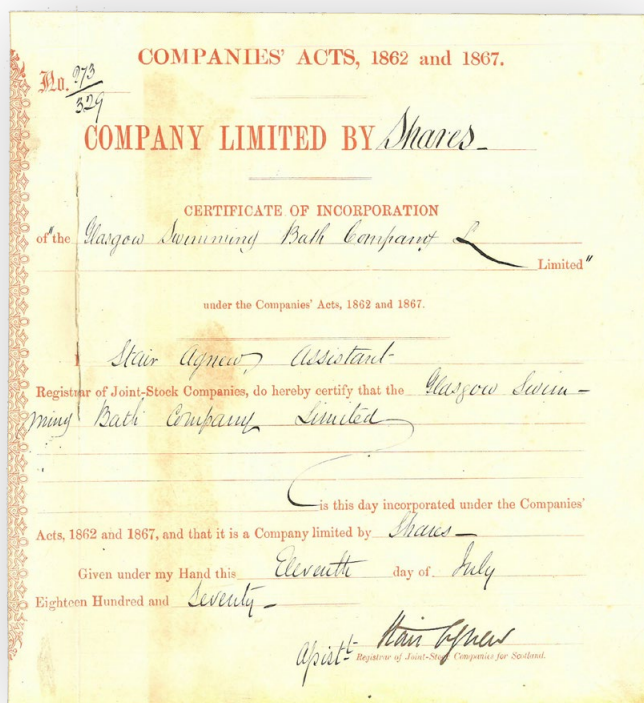 COMPANIES' ACTS, 1862 and 1867.
No. 273
329
COMPANY LIMITED BY Shares
CERTIFICATE OF INCORPORATION
of "the Glasgow Swimming Bath Company L
Limited"
under the Companies' Acts, 1862 and 1867.
I Stair Agnew, Assistant
Registrar of Joint-Stock Companies, do hereby certify that the Glasgow Swim-
ming Bath Company Limited
is this day incorporated under the Companies'
Acts, 1862 and 1867, and that it is a Company limited by Shares
Given under my Hand this Eleventh day of July
Eighteen Hundred and Seventy
Stair Agnew
Assistt Registrar of Joint-Stock Companies for Scotland.